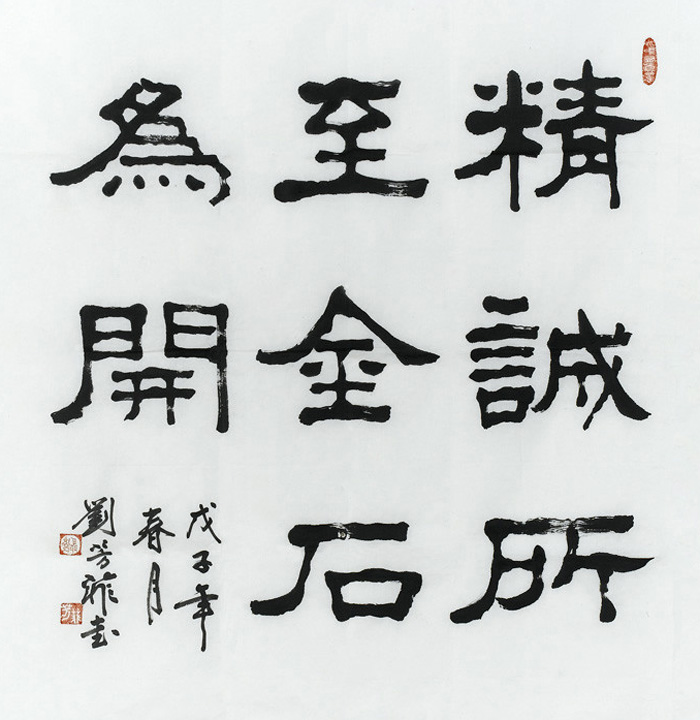 精誠所
至金石
為開
戊子年
春月
劉芳書